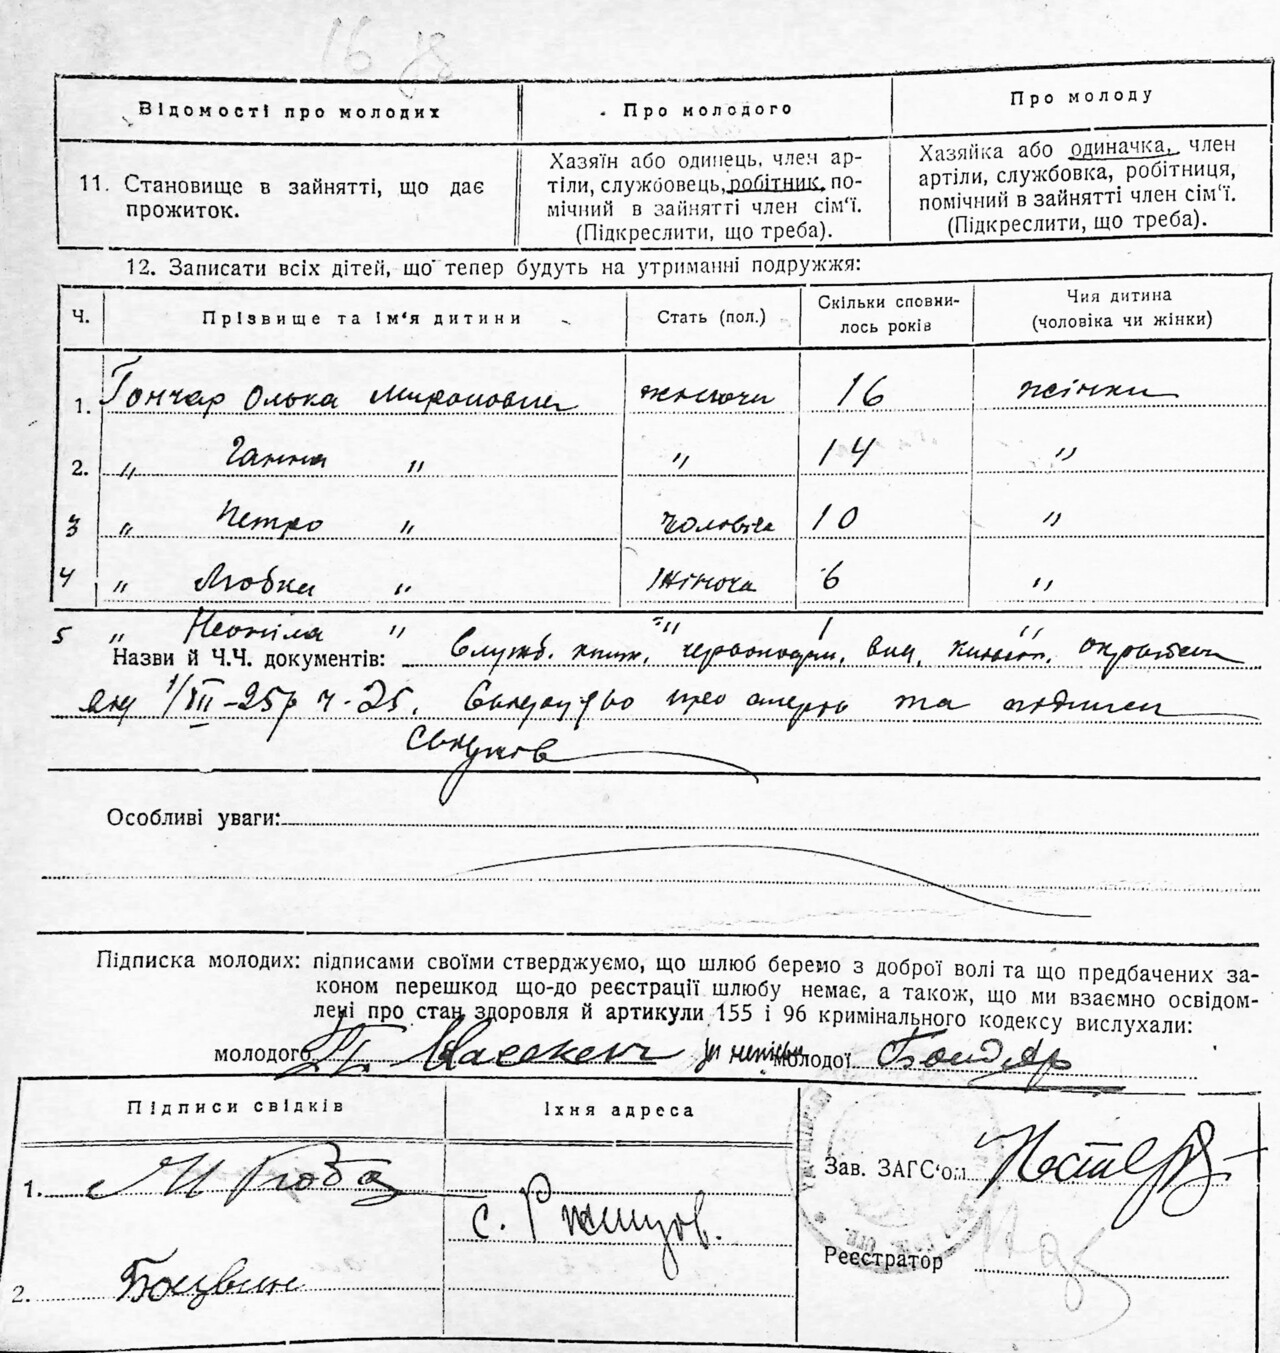 16
Відомості про молодих
Про молодого
Про молоду
11. Становище в зайнятті, що дає
прожиток.
Хазяїн або одинець, член ар-
тіли, службовець, робітник, по-
мічний в зайнятті член сім'ї.
(Підкреслити, що треба).
Хазяйка або одиначка, член
артіли, службовка, робітниця,
помічний в зайнятті член сім'ї.
(Підкреслити, що треба).
12. Записати всіх дітей, що тепер будуть на утриманні подружжя:
Ч.
Прізвище та ім'я дитини
Стать (пол.)
Скільки сповни-
лось років
Чия дитина
(чоловіка чи жінки)
1. Гончар Олька Мироновна жіночи 16 жінки
2. „ Ганна „ „ 14 „
3 „ Петро „ чоловіча 10 „
4 „ Любка „ жіноча 6 „
5 „ Неоніла „ „ 1 „
Назви й Ч.Ч. документів: Служб. книж.
25р ч. 25. про смерть та підписи
свідків
Особливі уваги:
Підписка молодих: підписами своїми стверджуємо, що шлюб беремо з доброї волі та що предбачених за-
коном перешкод що-до реєстрації шлюбу немає, а також, що ми взаємно освідом-
лені про стан здоровля й артикули 155 і 96 кримінального кодексу вислухали:
молодого молодої Бондар
Підписи свідків
Їхня адреса
1.
с.
2.
Зав. ЗАГС'ом
Реєстратор